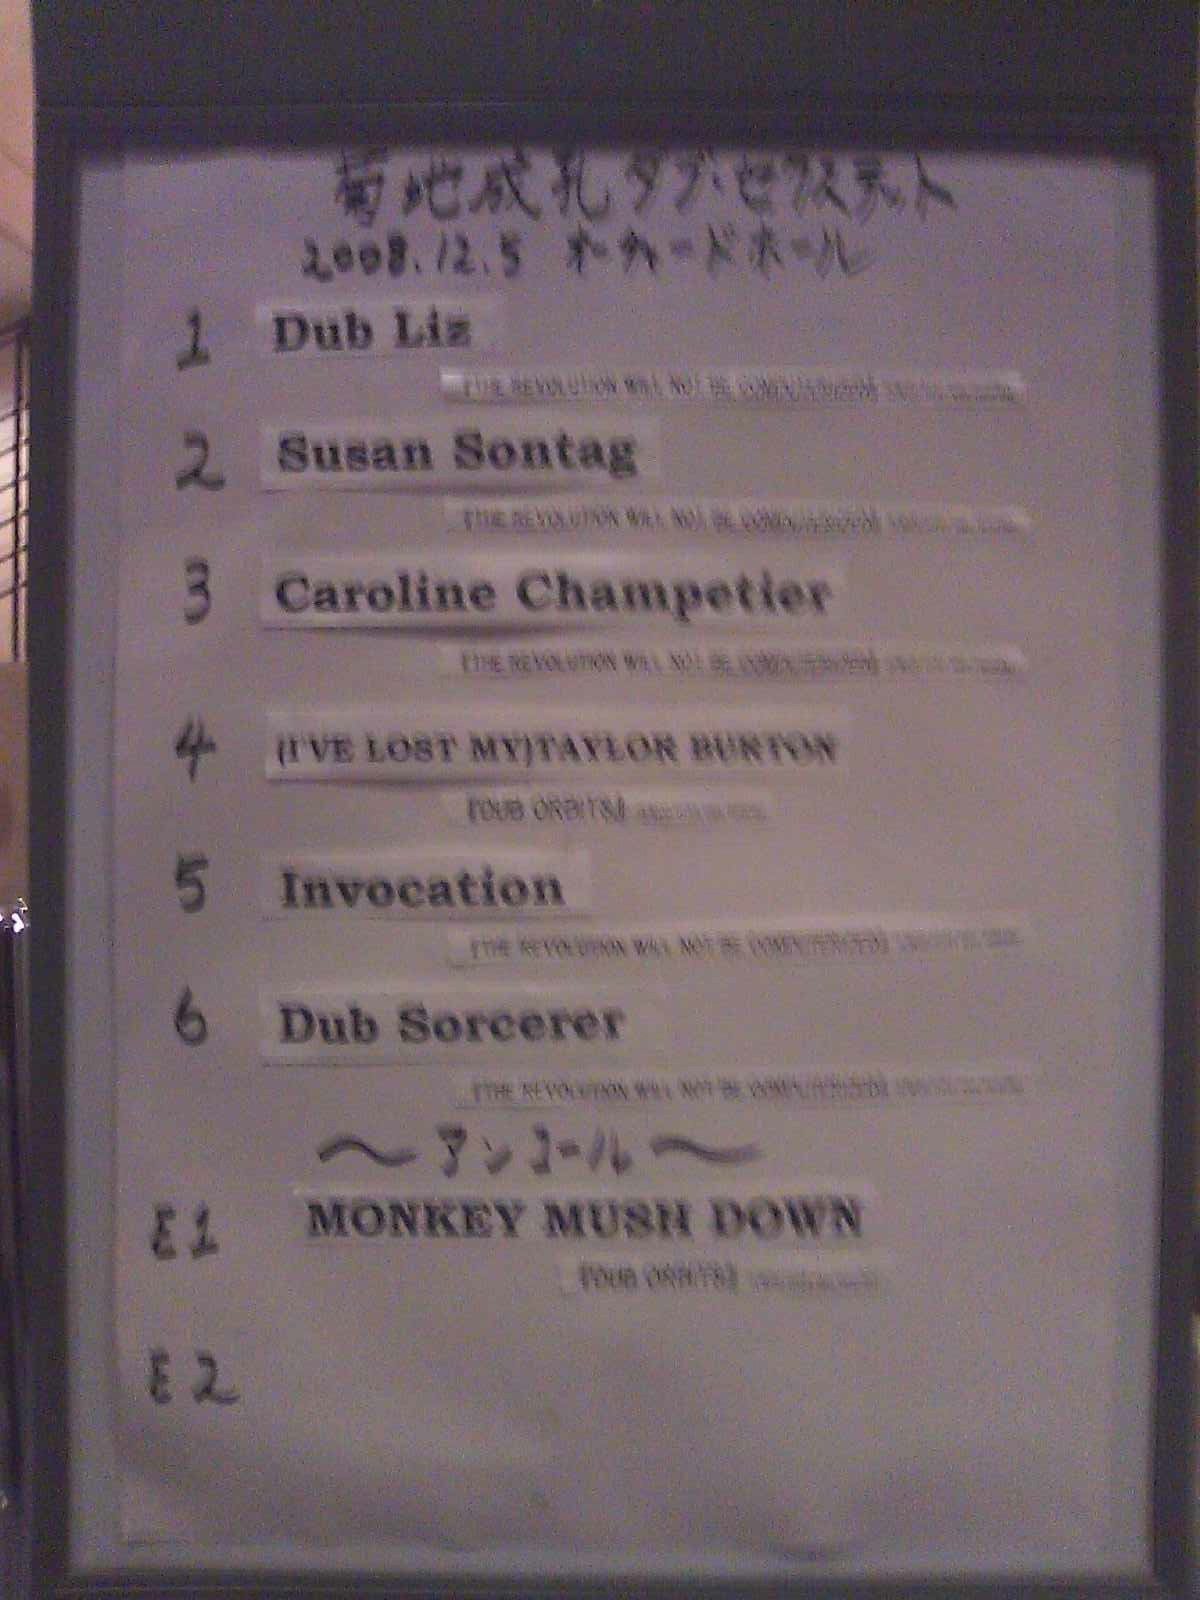 菊地成孔ダブ・セクステット
2008.12.5 オーチャードホール
1 Dub Liz
『THE REVOLUTION WILL NOT BE COMPUTERIZED』
2 Susan Sontag
『THE REVOLUTION WILL NOT BE COMPUTERIZED』
3 Caroline Champetier
『THE REVOLUTION WILL NOT BE COMPUTERIZED』
4 (I'VE LOST MY)TAYLOR BURTON
『DUB ORBITS』
5 Invocation
『THE REVOLUTION WILL NOT BE COMPUTERIZED』
6 Dub Sorcerer
『THE REVOLUTION WILL NOT BE COMPUTERIZED』
〜アンコール〜
E1 MONKEY MUSH DOWN
『DUB ORBITS』
E2